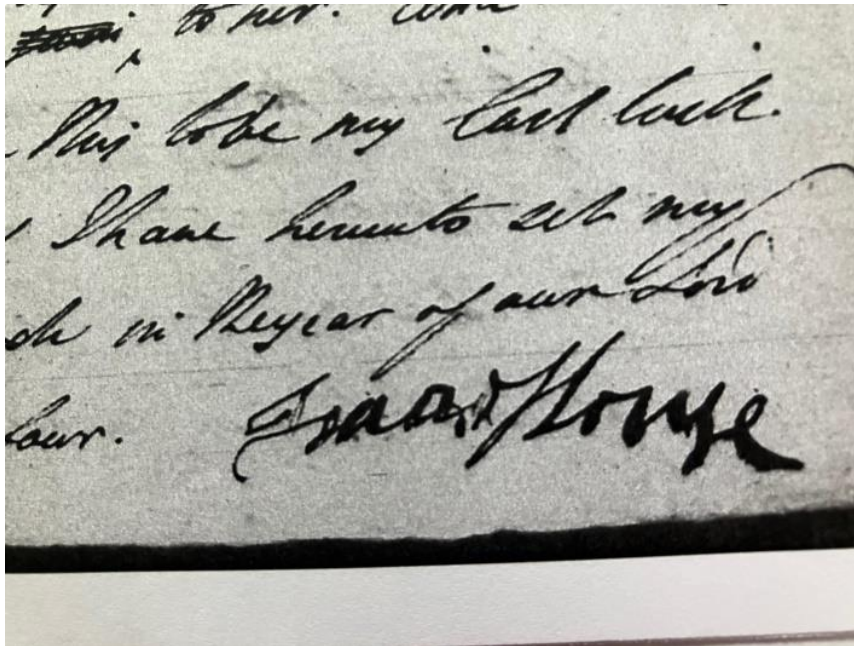 to her.
this to be my last will.
I have hereunto set my
in the year of our Lord
four.
Isaac House